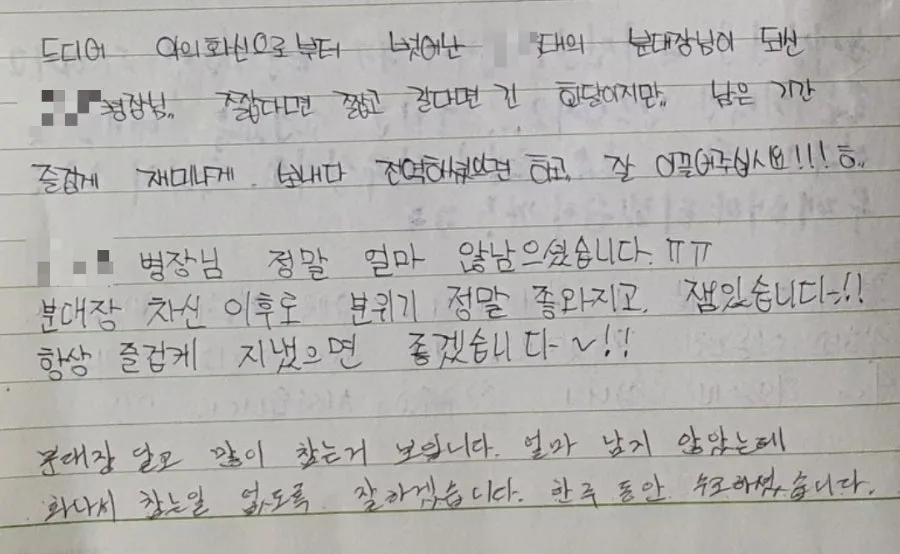 드디어 악의화신으로부터 벗어난 대의 분대장님이 되신
병장님.. 짧다면 짧고 길다면 긴 한달이지만.. 남은 기간
즐겁게 재미나게 보내다 전역하셨으면 하고, 잘 이끌어주십시요!!! ㅎ..
병장님 정말 얼마 않남으셨습니다.ㅠㅠ
분대장 차신 이후로 분위기 정말 좋와지고, 잼있습니다~!!
항상 즐겁게 지냈으면 좋겠습니다~~!!
분대장 달고 많이 참는거 보입니다. 얼마 남지 않았는데
화나서 참는일 없도록 잘하겠습니다. 한주 동안 수고하셨습니다.